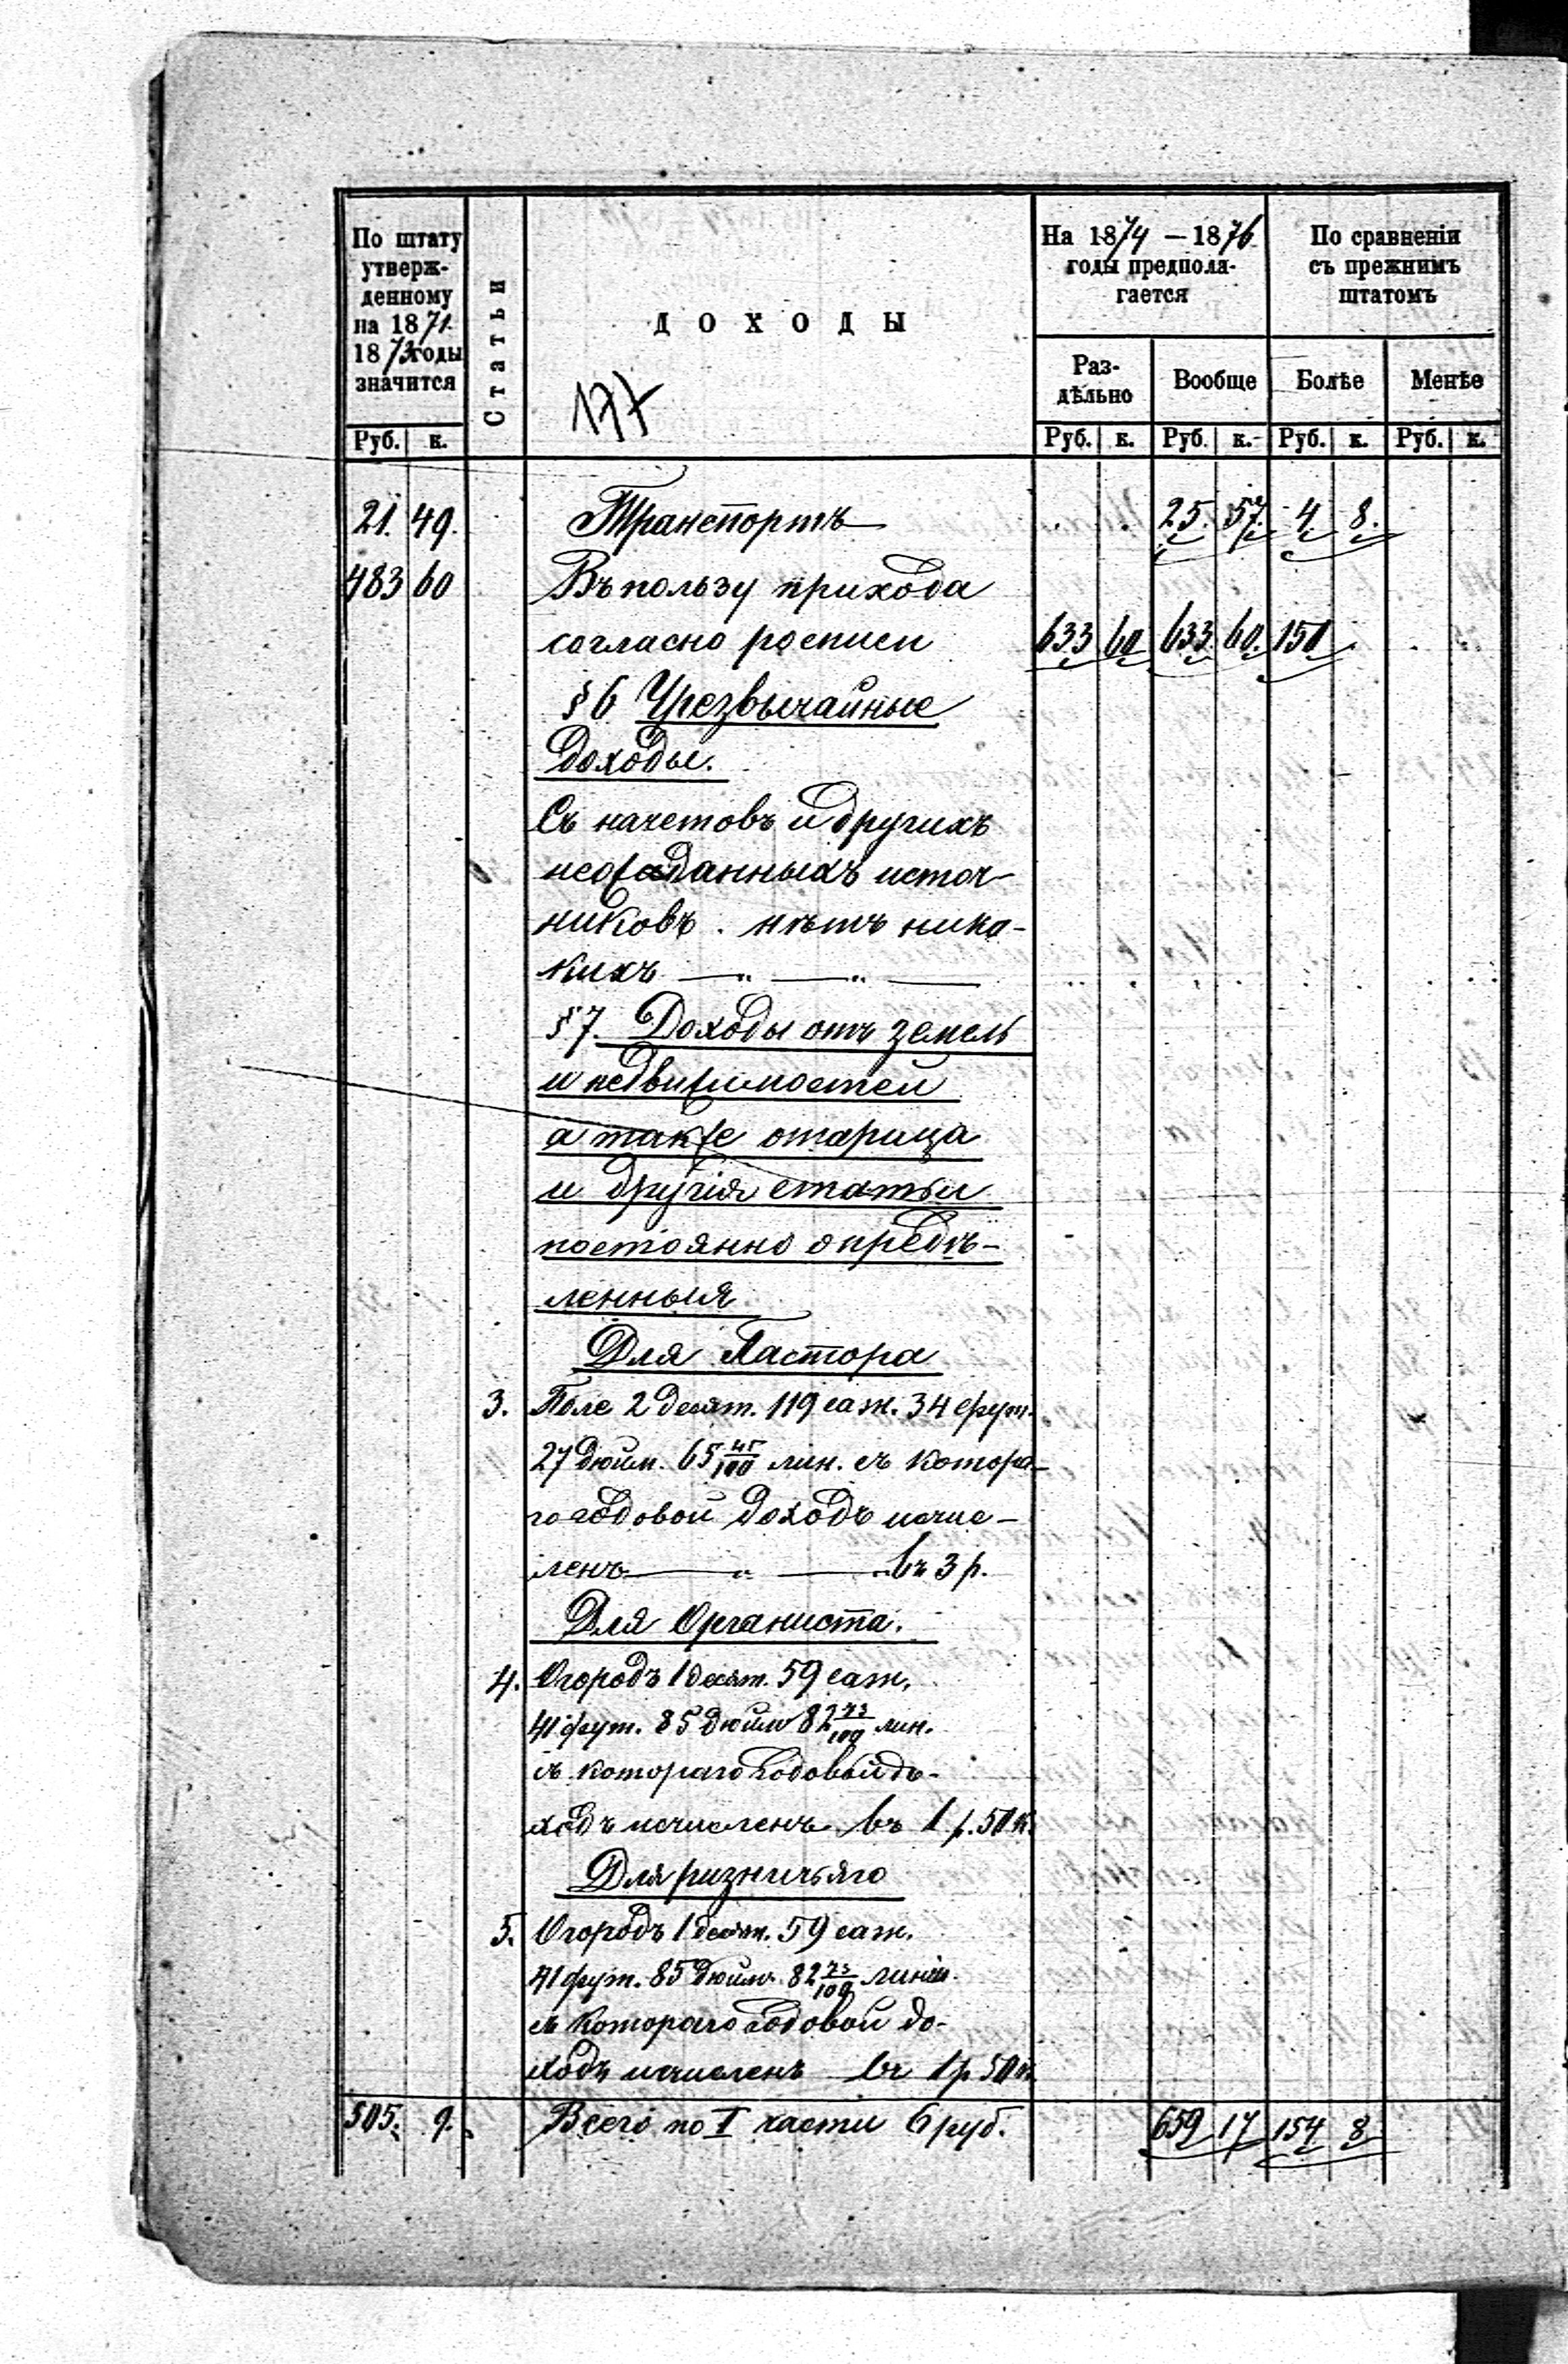 По штату утверж- денному на 1871- 1873 годы значится
Статьи
ДОХОДЫ
177
На 1874 — 1876 годы предпола- гается
По сравненію съ прежнимъ штатомъ
Раз- дѣльно
Вообще
Болѣе
Менѣе
Руб. к. Руб. к. Руб. к. Руб. к. Руб. к.
21. 49. Транспортъ 25. 57. 4 8.
483 60 Въ пользу прихода
согласно росписи 633 60 633 60. 150
§ 6 Чрезвычайные
доходы.
Съ начетовъ и другихъ
неожаданныхъ источ-
никовъ . нѣтъ ника-
кихъ — „ — „ —
§ 7. Доходы отъ земель
и недвижимостей
а также
и другія статьи
постоянно опредѣ-
ленныя
Для Пастора
3. Поле 2 десят. 119 саж. 34 фут.
27 дюйм. 65 45/100 лин. съ котора-
го годовой доходъ исчис-
ленъ — „ — „ въ 3 р.
Для Органиста.
4. Огородъ 1 десят. 59 саж.
41 фут. 85 дюйм 82 73/100 лин.
съ котораго годовый до-
ходъ исчисленъ въ 1 р. 50 к.
Для ризничьяго
5. Огородъ 1 десят. 59 саж.
41 фут. 85 дюйм. 82 73/100 линій.
съ котораго годовой до-
ходъ исчисленъ въ 1 р 50 к.
505. 9. Всего по I части 6 руб. 659 17 154 8